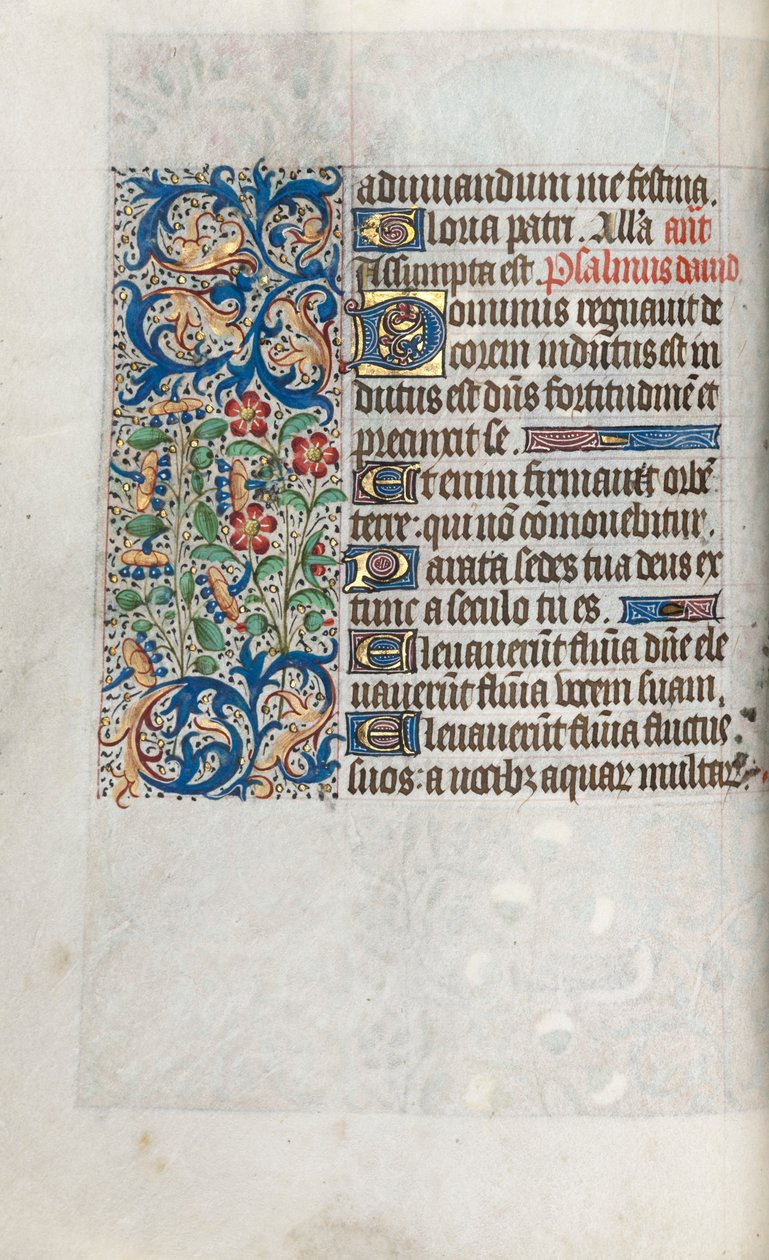 adiuuandum me festina.
Gloria patri. All'a an̄t
Assumpta est. Psalmus dauid.
Dominus regnauit de
corem indutus est in
dutus est dn̄s fortitudinē et
precinxit se.
Etenim firmauit orbē
terre: qui nō cōmouebitur.
Parata sedes tua deus ex
tunc a seculo tu es.
Eleuauerūt flumīa dn̄e ele
uauerūt flumīa vocem suam.
Eleuauerūt flumīa fluctus
suos: a vocibꝫ aquaꝝ multaꝝ.